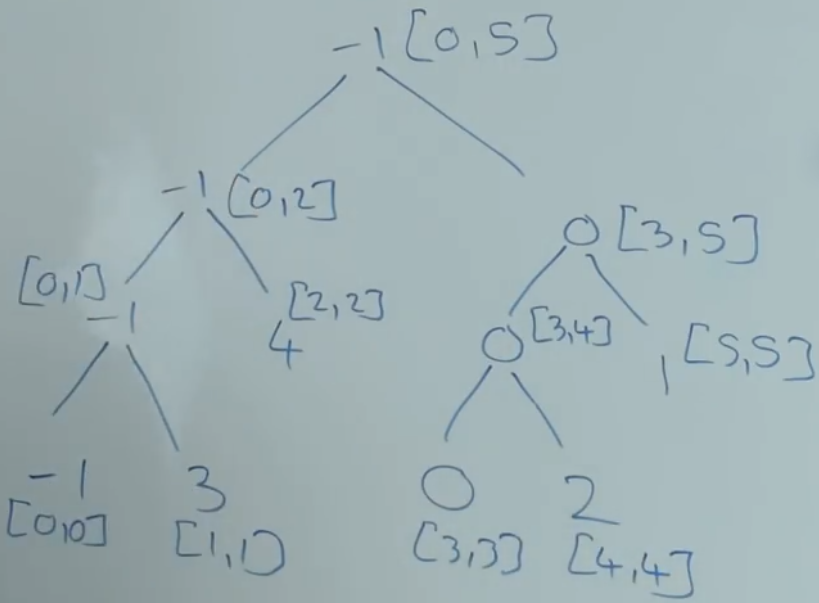 -1 [0,5]
-1 [0,2]
0 [3,5]
[0,1]
-1
[2,2]
4
0 [3,4]
1 [5,5]
-1
[0,0]
3
[1,1]
0
[3,3]
2
[4,4]